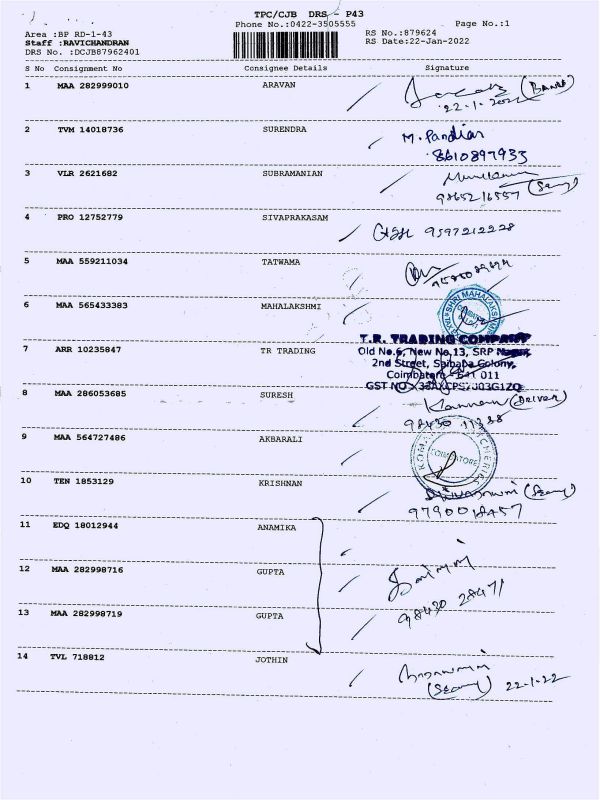 TPC/CJB DRS - P43
Phone No.:0422-3505555 Page No.:1
Area :BP RD-1-43 RS No.:879624
Staff :RAVICHANDRAN RS Date:22-Jan-2022
DRS No. :DCJB87962401
S No Consignment No Consignee Details Signature
1 MAA 282999010 ARAVAN
22-1-2022
2 TVM 14018736 SURENDRA M. Pandian
8610897933
3 VLR 2621682 SUBRAMANIAN
9865216557
4 PRO 12752779 SIVAPRAKASAM 9597212228
5 MAA 559211034 TATWAMA
6 MAA 565433383 MAHALAKSHMI
MAHALAKSHMI
T.R. TRADING COMPANY
7 ARR 10235847 TR TRADING Old No.6, New No.13, SRP Nagar,
2nd Street, Saibaba Colony,
Coimbatore - 641 011
GST NO
8 MAA 286053685 SURESH Kannan (Driver)
98430 11388
9 MAA 564727486 AKBARALI
COIMBATORE
10 TEN 1853129 KRISHNAN
9790018457
11 EDQ 18012944 ANAMIKA
12 MAA 282998716 GUPTA
98430 28471
13 MAA 282998719 GUPTA
14 TVL 718812 JOTHIN
22-1-22